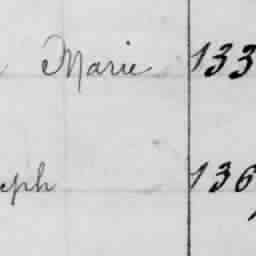 Marie 133
eph 136